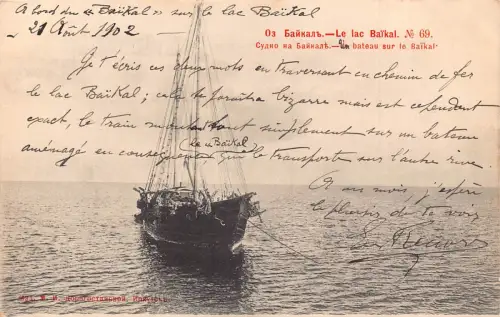 A bord du « Baïkal » sur le lac Baïkal
21 Août 1902
Оз Байкалъ.—Le lac Baïkal. № 69.
Судно на Байкалѣ.—Un bateau sur le Baïkal
Je t'écris ces deux mots en traversant en chemin de fer
le lac Baïkal; cela te paraîtra bizarre mais est cependant
exact, le train montant tout simplement sur un bateau
le « Baïkal
aménagé en conséquence qui le transporte sur l'autre rive.
mois, j'espère
le plaisir de te voir